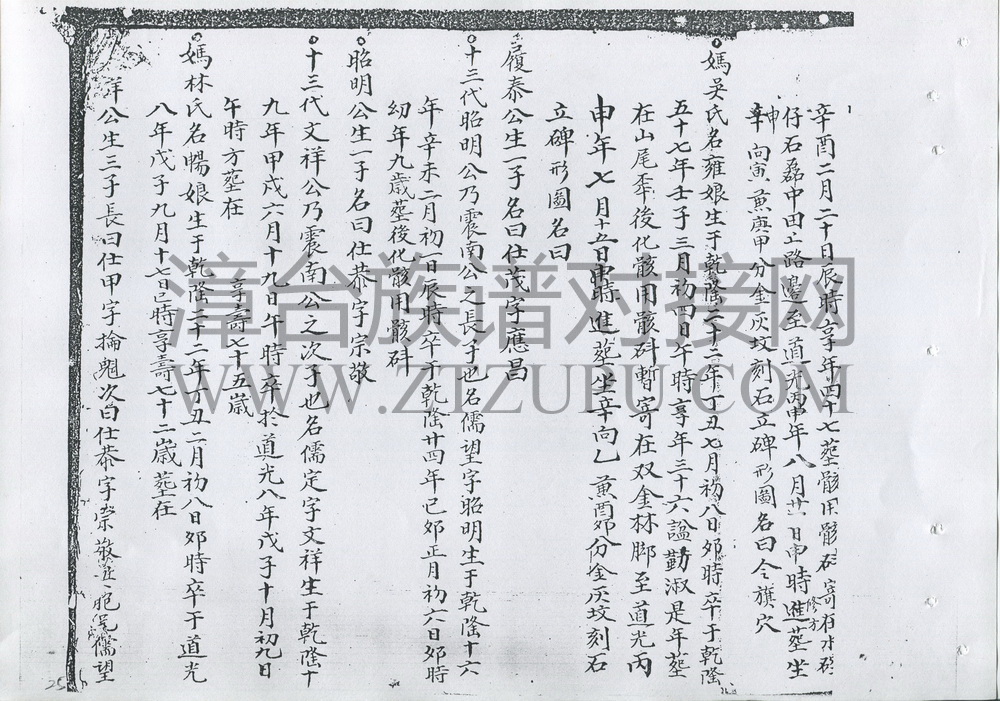 辛酉二月二十日辰時享年四十七葬骸用骸㪷寄在才
仔石磊中田土路邊至道光丙申年八月廿一日申時進葬坐
修方
申向寅兼庚甲分金灰坟刻石立碑形圖名曰令旗穴
媽吳氏名雍娘生于乾隆二十二年丁丑七月初八日卯時卒于乾隆
五十七年壬子三月初四日午時享年三十六諡勤淑是年葬
在山尾牽後化骸用骸㪷暫寄在双金林脚至道光丙
申年七月十五日申時進葬坐辛向乙兼酉卯份金灰坟刻石
立碑形圖名曰
履泰公生一子名曰仕茂字應昌
十三代昭明公乃震南公之長子也名儒望字昭明生于乾隆十六
年辛未二月初一日辰時卒于乾隆廿四年己卯正月初六日卯時
幼年九歲葬後化骸用骸㪷
昭明公生一子名曰仕恭字宗敬
十三代文祥公乃震南公之次子也名儒定字文祥生于乾隆十
九年甲戌六月十九日午時卒於道光八年戊子十月初九日
午時方葬在 享壽七十五歲
媽林氏名暢娘生于乾隆二十二年丁丑二月初八日卯時卒于道光
八年戊子九月十七日巳時享壽七十二歲葬在
祥公生三子長曰仕甲字掄魁次曰仕恭字崇敬並胞兄儒望
25
漳台族谱对接网
WWW.ZTZUPU.COM